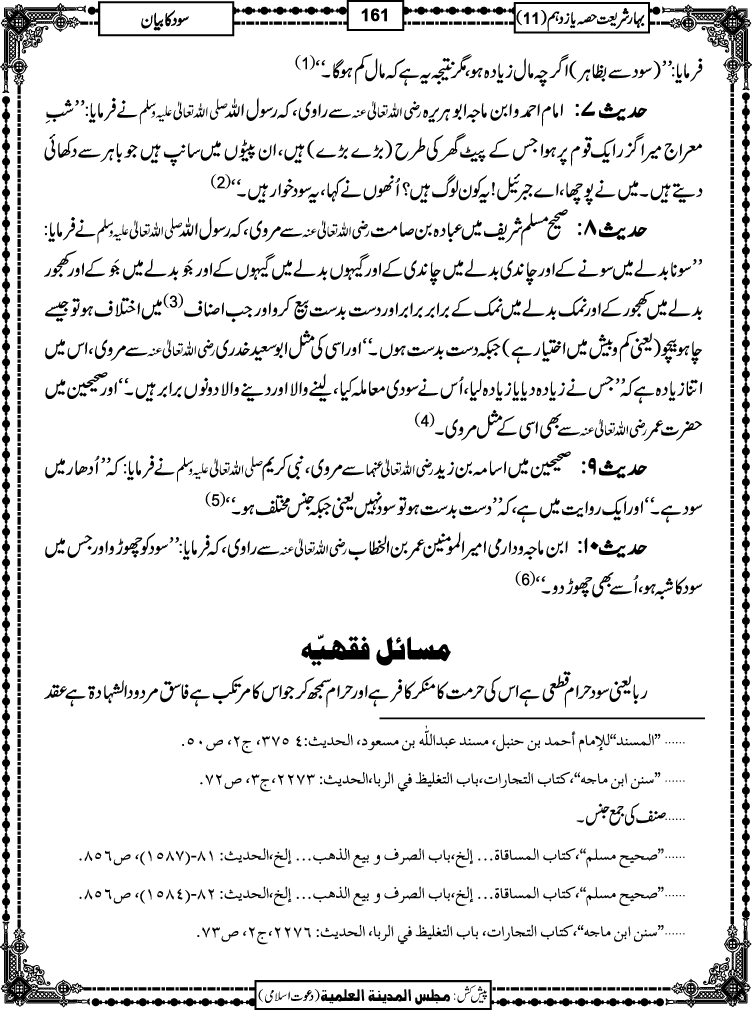 بہار شریعت حصہ یازدہم (11)
161
سود کا بیان
فرمایا: ’’(سود سے بظاہر) اگرچہ مال زیادہ ہو، مگر نتیجہ یہ ہے کہ مال کم ہوگا۔‘‘(1)
حدیث ۷: امام احمد و ابن ماجہ ابو ہریرہ رضی اللہ تعالیٰ عنہ سے راوی، کہ رسول اللہ صلی اللہ تعالیٰ علیہ وسلم نے فرمایا: ’’شبِ
معراج میرا گزر ایک قوم پر ہوا جس کے پیٹ گھر کی طرح (بڑے بڑے) ہیں، ان پیٹوں میں سانپ ہیں جو باہر سے دکھائی
دیتے ہیں۔ میں نے پوچھا، اے جبرئیل! یہ کون لوگ ہیں؟ اُنھوں نے کہا، یہ سود خوار ہیں۔‘‘(2)
حدیث ۸: صحیح مسلم شریف میں عبادہ بن صامت رضی اللہ تعالیٰ عنہ سے مروی، کہ رسول اللہ صلی اللہ تعالیٰ علیہ وسلم نے فرمایا:
’’سونا بدلے میں سونے کے اور چاندی بدلے میں چاندی کے اور گیہوں بدلے میں گیہوں کے اور جَو بدلے میں جَو کے اور کھجور
بدلے میں کھجور کے اور نمک بدلے میں نمک کے برابر برابر اور دست بدست بیع کرو اور جب اصناف(3) میں اختلاف ہو تو جیسے
چاہو بیچو (یعنی کم و بیش میں اختیار ہے) جبکہ دست بدست ہوں۔‘‘ اور اسی کی مثل ابو سعید خدری رضی اللہ تعالیٰ عنہ سے مروی، اس میں
اتنا زیادہ ہے کہ ’’جس نے زیادہ دیا یا زیادہ لیا، اُس نے سودی معاملہ کیا، لینے والا اور دینے والا دونوں برابر ہیں۔‘‘ اور صحیحین میں
حضرت عمر رضی اللہ تعالیٰ عنہ سے بھی اسی کے مثل مروی۔(4)
حدیث ۹: صحیحین میں اسامہ بن زید رضی اللہ تعالیٰ عنہما سے مروی، نبی کریم صلی اللہ تعالیٰ علیہ وسلم نے فرمایا: کہ ’’اُدھار میں
سود ہے۔‘‘ اور ایک روایت میں ہے، کہ ’’دست بدست ہو تو سود نہیں یعنی جبکہ جنس مختلف ہو۔‘‘(5)
حدیث ۱۰: ابن ماجہ و دارمی امیر المومنین عمر بن الخطاب رضی اللہ تعالیٰ عنہ سے راوی، کہ فرمایا: ’’سود کو چھوڑو اور جس میں
سود کا شبہ ہو، اُسے بھی چھوڑ دو۔‘‘(6)
مسائل فقھیّہ
ربا یعنی سود حرام قطعی ہے اس کی حرمت کا منکر کافر ہے اور حرام سمجھ کر جو اس کا مرتکب ہے فاسق مردود الشہادۃ ہے عقد
...... ”المسند“ للإمام أحمد بن حنبل، مسند عبدالله بن مسعود، الحدیث: ٣٧٥٤، ج٢، ص٥٠.
...... ”سنن ابن ماجه“، کتاب التجارات، باب التغلیظ في الربا، الحدیث: ٢٢٧٣، ج٣، ص٧٢.
......صنف کی جمع جنس۔
......”صحیح مسلم“، کتاب المساقاة... إلخ، باب الصرف و بیع الذهب... إلخ، الحدیث: ٨١-(١٥٨٧)، ص٨٥٦.
......”صحیح مسلم“، کتاب المساقاة... إلخ، باب الصرف و بیع الذهب... إلخ، الحدیث: ٨٢-(١٥٨٤)، ص٨٥٦.
......”سنن ابن ماجه“، کتاب التجارات، باب التغلیظ في الربا، الحدیث: ٢٢٧٦، ج٢، ص٧٣.
پیش کش: مجلس المدینۃ العلمیۃ (دعوت اسلامی)